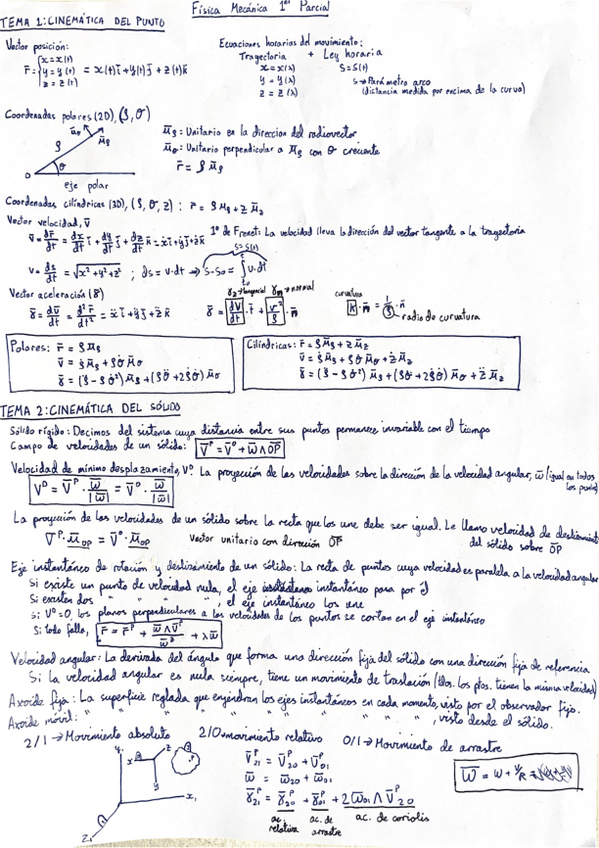 Física Mecánica 1er Parcial
TEMA 1: CINEMÁTICA DEL PUNTO
Vector posición:
r̅ = { x = x(t) y = y(t) z = z(t) = x(t) i̅ + y(t) j̅ + z(t) k̅
Ecuaciones horarias del movimiento:
Trayectoria + Ley horaria
x = x(λ) S = S(t)
y = y(λ) s → Parámetro arco
z = z(λ) (distancia medida por encima de la curva)
Coordenadas polares (2D), (ρ, θ)
u̅θ u̅ρ
ρ
θ
O
eje polar
u̅ρ: Unitario en la direccion del radiovector
u̅θ: Unitario perpendicular a u̅ρ con θ creciente
r̅ = ρ u̅ρ
Coordenadas cilíndricas (3D), (ρ, θ, z) : r̅ = ρ u̅ρ + z u̅z
Vector velocidad, v̅
v̅ = dr̅/dt = dx/dt i̅ + dy/dt j̅ + dz/dt k̅ = ẋ i̅ + ẏ j̅ + ż k̅
1º de Frenet: La velocidad lleva la dirección del vector tangente a la trayectoria
S = S(t)
v = ds/dt = √ẋ² + ẏ² + ż² ; ds = v·dt ⇒ S - S₀ = ∫ v·dt
Vector aceleración (γ̅)
γ̅ = dv̅/dt = d²r̅/dt² = ẍ i̅ + ÿ j̅ + z̈ k̅
γt → tangencial γn → normal
γ̅ = dv/dt · t̅ + v²/ρ · n̅
curvatura
k · n̅ = 1/ρ · n̅
radio de curvatura
Polares: r̅ = ρ u̅ρ
v̅ = ρ̇ u̅ρ + ρ θ̇ u̅θ
γ̅ = (ρ̈ - ρ θ̇²) u̅ρ + (ρ θ̈ + 2ρ̇ θ̇) u̅θ
Cilíndricas: r̅ = ρ u̅ρ + z u̅z
v̅ = ρ̇ u̅ρ + ρ θ̇ u̅θ + ż u̅z
γ̅ = (ρ̈ - ρ θ̇²) u̅ρ + (ρ θ̈ + 2ρ̇ θ̇) u̅θ + z̈ u̅z
TEMA 2: CINEMÁTICA DEL SÓLIDO
Sólido rígido: Decimos del sistema cuya distancia entre sus puntos permanece invariable con el tiempo
Campo de velocidades de un sólido: v̅ᴾ = v̅⁰ + ω̅ ∧ O̅P̅
Velocidad de mínimo desplazamiento, V⁰ La proyección de las velocidades sobre la dirección de la velocidad angular, ω̅ (igual en todos
los puntos)
V⁰ = V̅ᴾ · ω̅/|ω̅| = V̅⁰ · ω̅/|ω̅|
La proyección de las velocidades de un sólido sobre la recta que los une debe ser igual. Le llamo velocidad de deslizamiento
del sólido sobre O̅P̅
V̅ᴾ · u̅OP = V̅⁰ · u̅OP
Vector unitario con dirección O̅P̅
Eje instantáneo de rotación y deslizamiento de un sólido: La recta de puntos cuya velocidad es paralela a la velocidad angular
Si existe un punto de velocidad nula, el eje instantáneo pasa por él
Si existen dos " " " " , el eje instantáneo los une
Si V⁰ = 0, los planos perpendiculares a las velocidades de los puntos se cortan en el eje instantáneo
Si todo falla, r̅ = r̅ᴾ + ω̅ ∧ V̅ᴾ/ω² + λ ω̅
Velocidad angular: La derivada del ángulo que forma una dirección fija del sólido con una dirección fija de referencia
Si la velocidad angular es nula siempre, tiene un movimiento de traslación (tdos. los ptos. tienen la misma velocidad)
Axoide fijo: La superficie reglada que engendran los ejes instantáneos en cada momento, visto por el observador fijo.
Axoide móvil: " " " " " " " " , visto desde el sólido.
2/1 → Movimiento absoluto 2/0 → movimiento relativo 0/1 → Movimiento de arrastre
V̅ᴾ₂₁ = V̅ᴾ₂₀ + V̅ᴾ₀₁
ω̅ = ω̅₂₀ + ω̅₀₁
γ̅ᴾ₂₁ = γ̅ᴾ₂₀ + γ̅ᴾ₀₁ + 2 ω̅₀₁ ∧ V̅ᴾ₂₀
ac. relativa ac. de arrastre ac. de coriolis